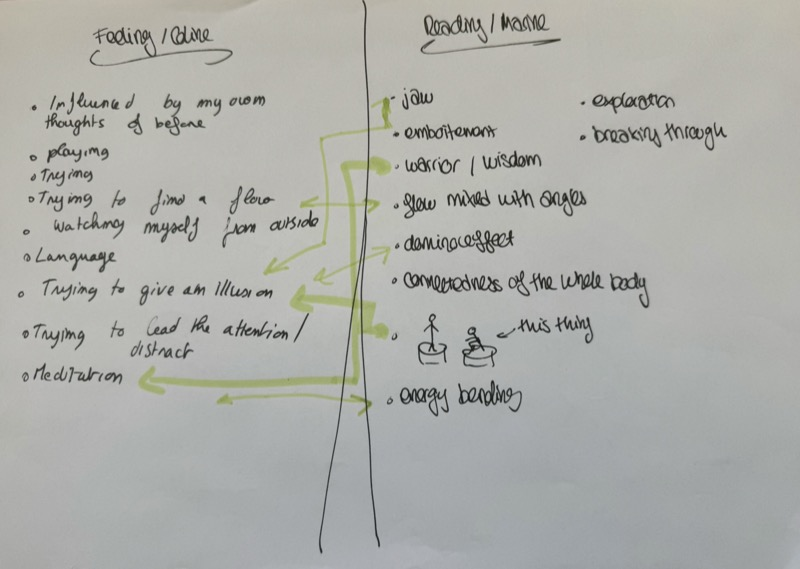 Feeling / Coline
• Influenced by my own
thoughts of before
• playing
• Trying
• Trying to find a flow
• watching myself from outside
• Language
• Trying to give an illusion
• Trying to lead the attention /
distract
• Meditation
Reading / Marine
• jaw
• emboitement
• warrior / wisdom
• flow mixed with angles
• domino effect
• connectedness of the whole body
• this thing
• energy bending
• exploration
• breaking through